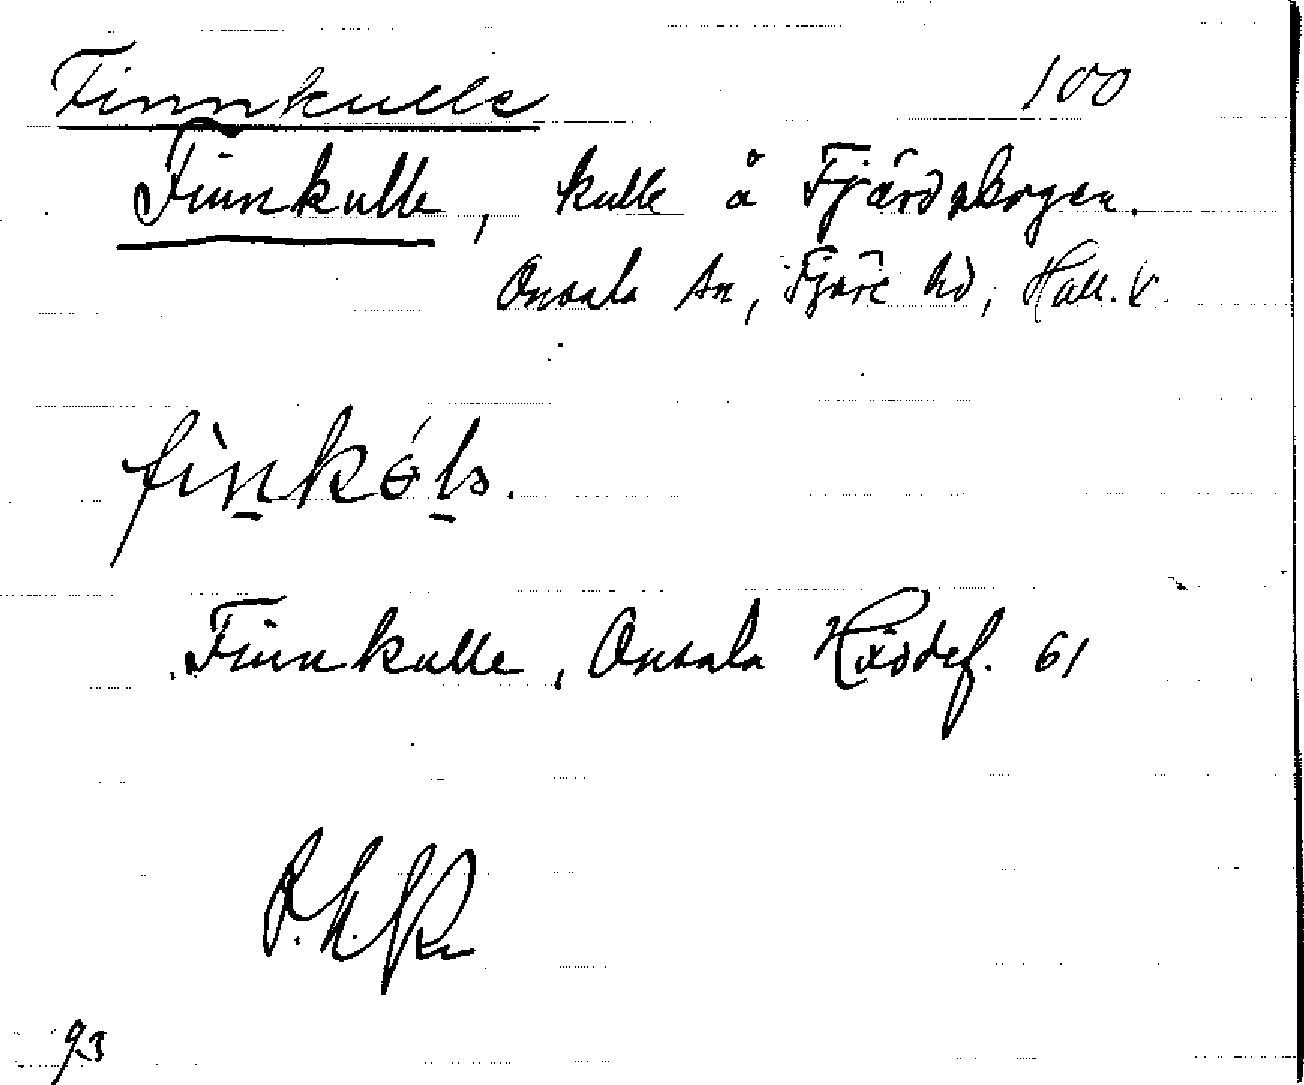 Finnkulle 100
Finnkulle, kulle å Fjärdskogen.
Onsala sn, Fjäre hd, Hall. V.
Finnkulle, Onsala Häradsf. 61
93